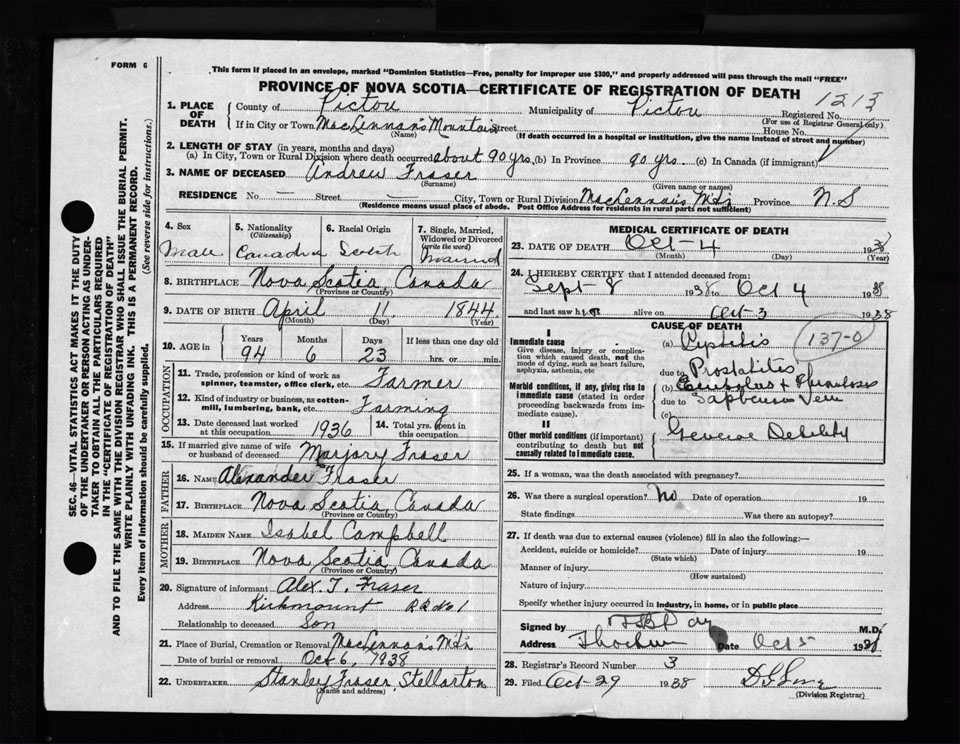 FORM 6
This form if placed in an envelope, marked "Dominion Statistics—Free, penalty for improper use $300," and properly addressed will pass through the mail "FREE"
PROVINCE OF NOVA SCOTIA—CERTIFICATE OF REGISTRATION OF DEATH
1213
1. PLACE OF DEATH
County of Pictou Municipality of Pictou Registered No.
(For use of Registrar General only)
If in City or Town MacLennan's Mountain Street House No.
(Name) (If death occurred in a hospital or institution, give the name instead of street and number)
2. LENGTH OF STAY (in years, months and days)
(a) In City, Town or Rural Division where death occurred about 90 yrs. (b) In Province 90 yrs. (c) In Canada (if immigrant)
3. NAME OF DECEASED Andrew Fraser
(Surname) (Given name or names)
RESIDENCE No. — Street City, Town or Rural Division MacLennan's Mtn Province N.S
(Residence means usual place of abode. Post Office Address for residents in rural parts not sufficient)
4. Sex
Male
5. Nationality
(Citizenship)
Canadian
6. Racial Origin
Scotch
7. Single, Married, Widowed or Divorced
(write the word)
Married
8. BIRTHPLACE Nova Scotia, Canada
(Province or Country)
9. DATE OF BIRTH April 11, 1844
(Month) (Day) (Year)
10. AGE in
Years Months Days If less than one day old
94 6 23 hrs. or min.
OCCUPATION
11. Trade, profession or kind of work as spinner, teamster, office clerk, etc. Farmer
12. Kind of industry or business, as cotton-mill, lumbering, bank, etc. Farming
13. Date deceased last worked at this occupation 1936
14. Total yrs. spent in this occupation
15. If married give name of wife or husband of deceased Marjory Fraser
FATHER
16. NAME Alexander Fraser
17. BIRTHPLACE Nova Scotia Canada
(Province or Country)
MOTHER
18. MAIDEN NAME Isabel Campbell
19. BIRTHPLACE Nova Scotia Canada
(Province or Country)
20. Signature of informant Alex. T. Fraser
Address Kirkmount RR No. 1
Relationship to deceased Son
21. Place of Burial, Cremation or Removal MacLennan's Mtn
Date of burial or removal Oct 6, 1938
22. UNDERTAKER Stanley Fraser, Stellarton
(Name and address)
MEDICAL CERTIFICATE OF DEATH
23. DATE OF DEATH Oct-4 1938
(Month) (Day) (Year)
24. I HEREBY CERTIFY that I attended deceased from:
Sept-8 1938 to Oct 4 1938
and last saw him alive on Oct-3 1938
CAUSE OF DEATH
137-0
I
Immediate cause
Give disease, injury or complication which caused death, not the mode of dying, such as heart failure, asphyxia, asthenia, etc
(a)
due to Prostatitis
Morbid conditions, if any, giving rise to immediate cause (stated in order proceeding backwards from immediate cause).
(b) Embolus +
due to Vein
(c)
II
Other morbid conditions (if important) contributing to death but not causally related to immediate cause.
General Debility
25. If a woman, was the death associated with pregnancy?
26. Was there a surgical operation? No Date of operation 19
State findings Was there an autopsy?
27. If death was due to external causes (violence) fill in also the following:—
Accident, suicide or homicide? Date of injury 19
(State which)
Manner of injury
(How sustained)
Nature of injury
Specify whether injury occurred in industry, in home, or in public place
Signed by M.D.
Address Date Oct 5 1938
28. Registrar's Record Number 3
29. Filed Oct-29 1938
(Division Registrar)
SEC. 46—VITAL STATISTICS ACT MAKES IT THE DUTY
OF THE UNDERTAKER OR PERSON ACTING AS UNDERTAKER
TO OBTAIN ALL THE PARTICULARS REQUIRED
IN THE "CERTIFICATE OF REGISTRATION OF DEATH"
AND TO FILE THE SAME WITH THE DIVISION REGISTRAR WHO SHALL ISSUE THE BURIAL PERMIT.
WRITE PLAINLY WITH UNFADING INK. THIS IS A PERMANENT RECORD.
Every item of information should be carefully supplied. (See reverse side for instructions.)